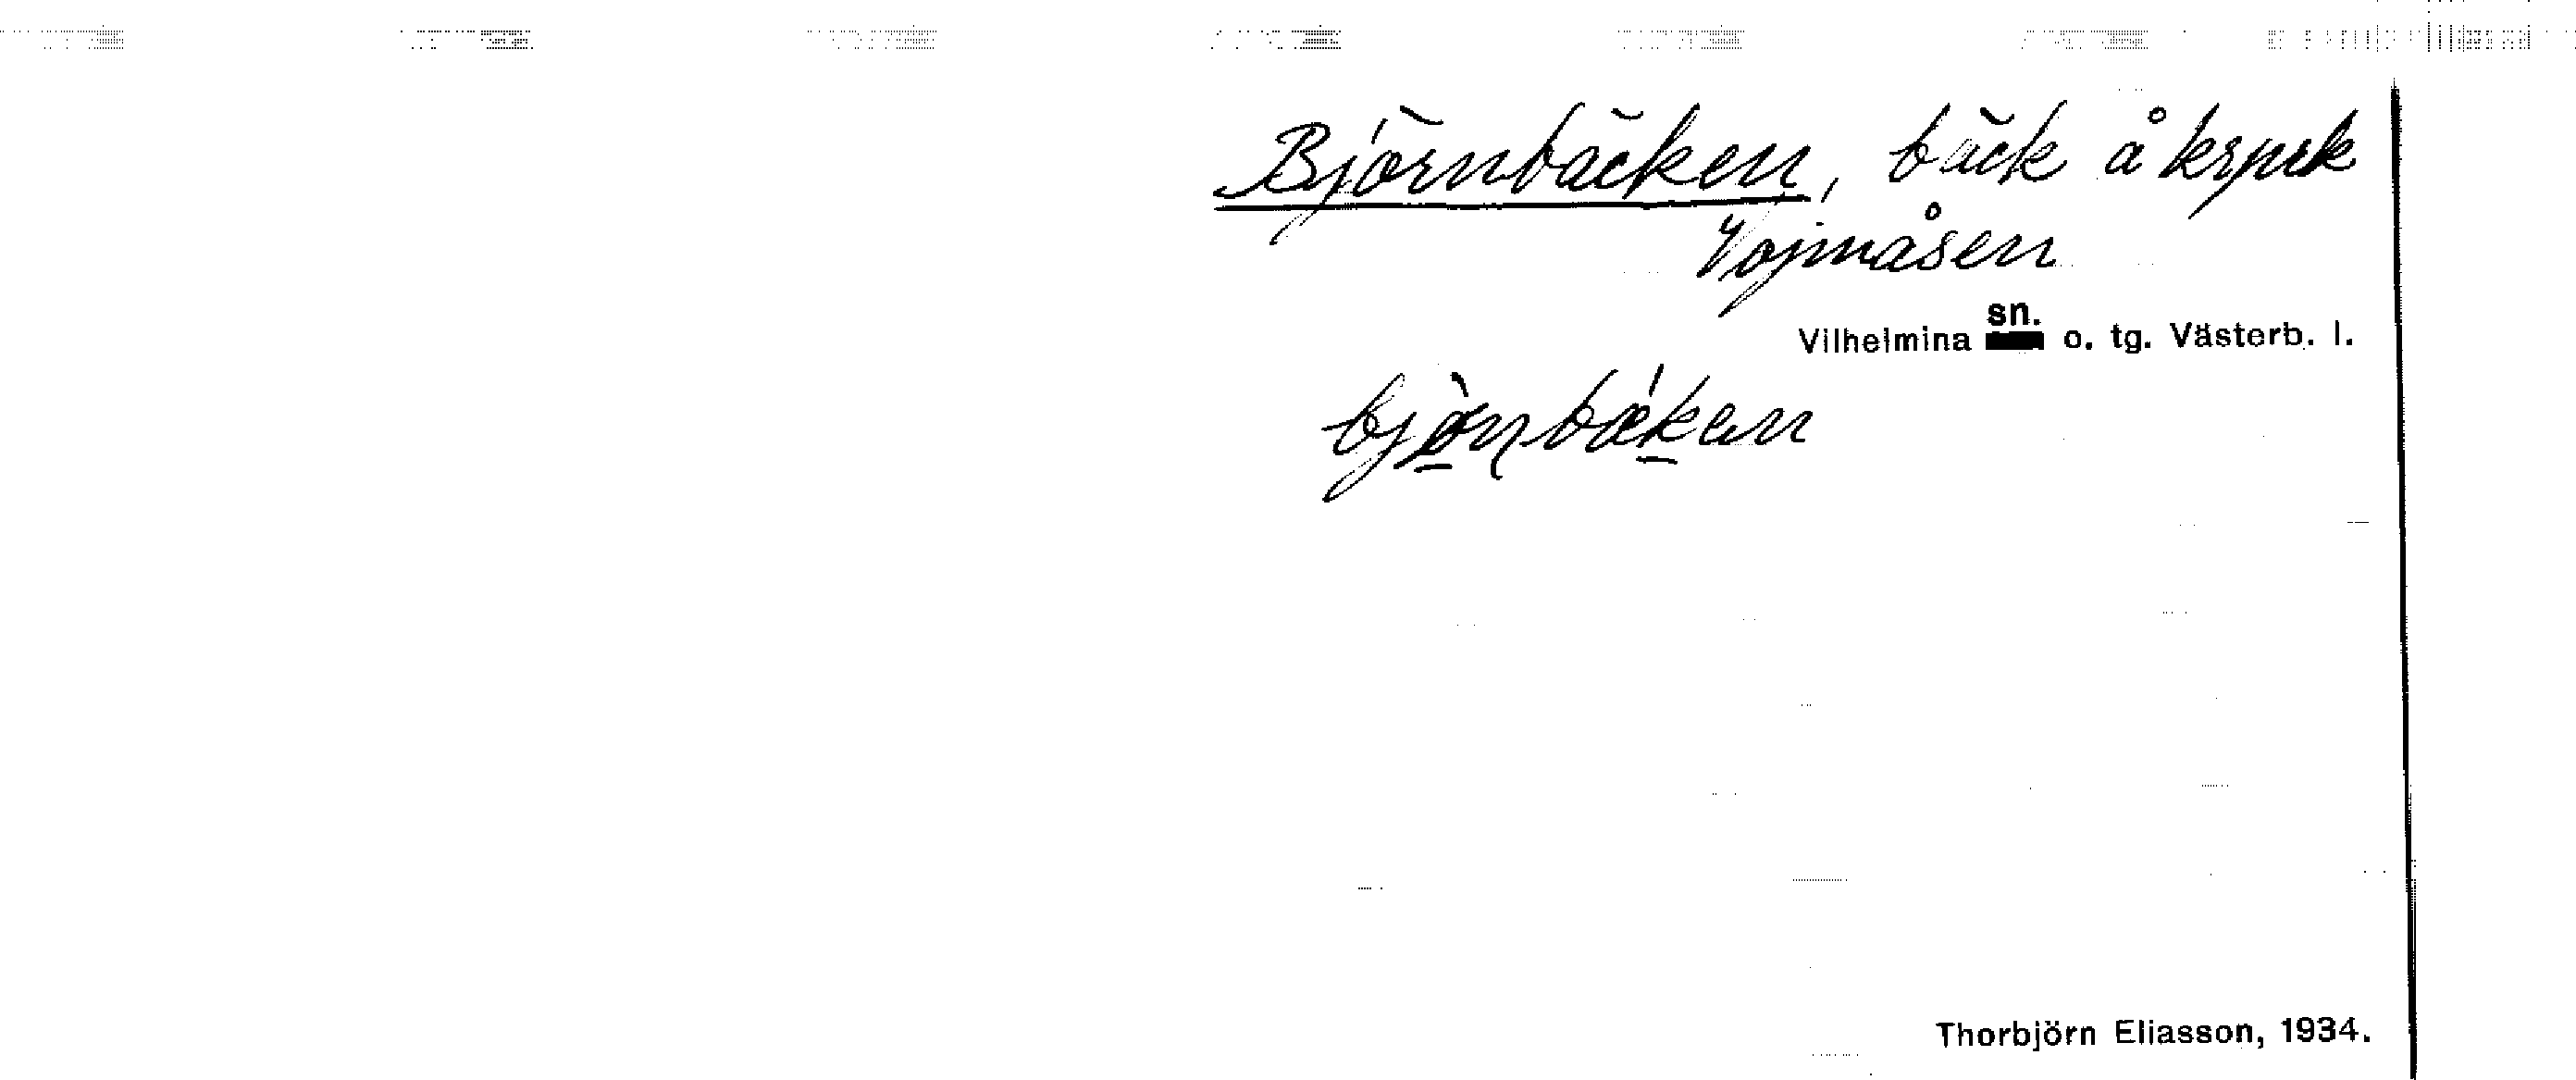 Björnbäcken, bäck å krpsk
Vojmåsen
Vilhelmina sn. o. tg. Västerb. l.
bjònbǽkan
Thorbjörn Eliasson, 1934.